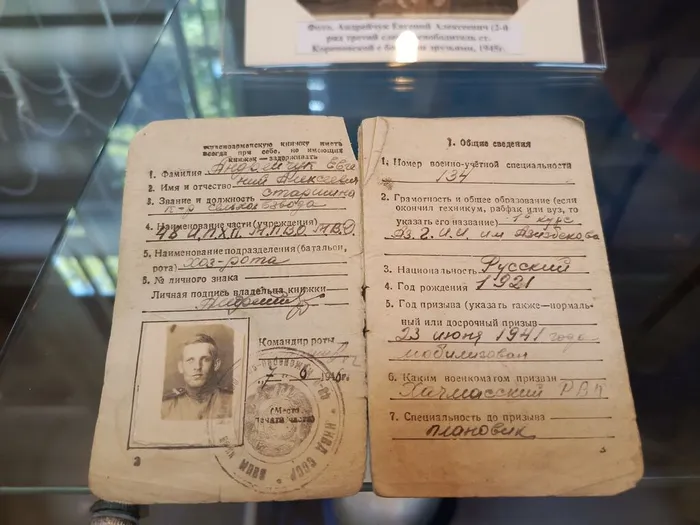 Фото. Андрийчук Евгений Алексеевич (2-й
ряд третий
освободитель ст.
с
друзьями, 1945г.
красноармейскую книжку иметь
всегда при себе. не имеющих
книжек — задерживать
1. Фамилия Андрийчук Евге
2. Имя и отчество ний Алексеевич
3. Звание и должность старшина
к-р взвода
4. Наименование части (учреждения)
48 М.П.В.О. М.В.Д.
5. Наименование подразделения (батальон,
рота) хоз-рота
6. № личного знака
Личная подпись владельца книжки
Командир роты
(Место
печати части)
НКВД СССР
3
I. Общие сведения
1. Номер военно-учётной специальности
134
2. Грамотность и общее образование (если
окончил техникум, рабфак или вуз, то
указать его название) 1й курс
им Азизбекова
3. Национальность Русский
4. Год рождения 1921
5. Год призыва (указать также—нормаль-
ный или досрочный призыв
23 июня 1941 года
мобилизован
6. Каким военкоматом призван
Хачмасский РВК
7. Специальность до призыва
плановик